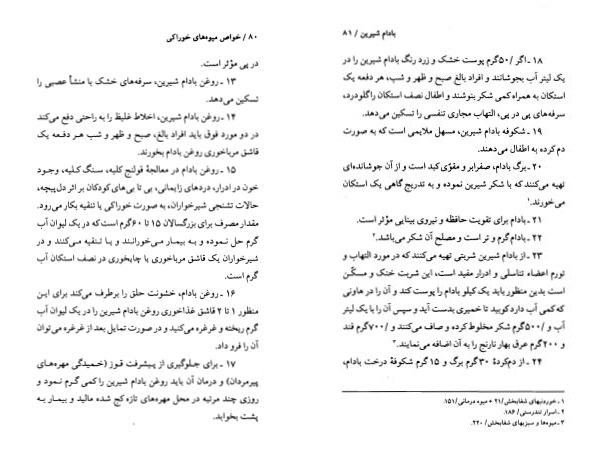 ۸۰ / خواص میوه‌های خوراکی
در پی مؤثر است.
۱۳ ـ روغن بادام شیرین، سرفه‌های خشک با منشأ عصبی را
تسکین می‌دهد.
۱۴ ـ روغن بادام شیرین، اخلاط غلیظ را به راحتی دفع می‌کند
در دو مورد فوق باید افراد بالغ، صبح و ظهر و شب هر دفعه یک
قاشق مرباخوری روغن بادام بخورند.
۱۵ ـ روغن بادام در معالجهٔ قولنج کلیه، سنگ کلیه، وجود
خون در ادرار، دردهای زایمانی، بی تا بی‌های کودکان بر اثر دل‌پیچه،
حالات تشنجی شیرخواران، به صورت خوراکی یا تنقیه بکار می‌رود.
مقدار مصرف برای بزرگسالان ۱۵ تا ۶۰گرم است که در یک لیوان آب
گرم حل نموده و به بیمار می‌خورانند و یا تنقیه می‌کنند و در
شیرخواران یک قاشق مرباخوری یا چایخوری در نصف استکان آب
گرم است.
۱۶ ـ روغن بادام، خشونت حلق را برطرف می‌کند برای این
منظور ۱ تا ۲ قاشق غذاخوری روغن بادام شیرین را در یک لیوان آب
گرم ریخته و غرغره می‌کنید و در صورت تمایل بعد از غرغره می‌توان
آن را فرو داد.
۱۷ ـ برای جلوگیری از پیشرفت قوز (خمیدگی مهره‌های
پیرمردان) و درمان آن باید روغن بادام شیرین را کمی گرم نمود و
روزی چند مرتبه در محل مهره‌های تازه کج شده مالید و بیمار به
پشت بخوابد.
بادام شیرین / ۸۱
۱۸ ـ اگر /۵۰گرم پوست خشک و زرد رنگ بادام شیرین را در
یک لیتر آب بجوشانند و افراد بالغ صبح و ظهر و شب، هر دفعه یک
استکان به همراه کمی شکر بنوشند و اطفال نصف استکان راگلودرد،
سرفه‌های پی در پی، التهاب مجاری تنفسی را تسکین می‌دهد.
۱۹ ـ شکوفه بادام شیرین، مسهل ملایمی است که به صورت
دم کرده به اطفال می‌دهند.
۲۰ ـ برگ بادام، صفرابر و مقوّی کبد است و از آن جوشانده‌ای
تهیه می‌کنند که با شکر شیرین نموده و به تدریج گاهی یک استکان
می‌خورند.۱
۲۱ ـ بادام برای تقویت حافظه و نیروی بینایی مؤثر است.
۲۲ ـ بادام گرم و تر است و مصلح آن شکر می‌باشد.۲
۲۳ ـ از بادام شیرین شربتی تهیه می‌کنند که در مورد التهاب و
تورم اعضاء تناسلی و ادرار مفید است، این شربت خنک و مسکّن
است بدین منظور باید یک کیلو بادام را پوست کند و آن را در هاونی
که کمی آب دارد کوبید تا خمیری بدست آید و سپس آن را با یک لیتر
آب و /۵۰۰گرم شکر مخلوط کرده و صاف می‌کنند و /۷۰۰گرم قند
و ۲۰۰گرم عرق بهار نارنج را به آن اضافه می‌نمایند.۳
۲۴ ـ از دم‌کردهٔ ۳۰گرم برگ و ۱۵ گرم شکوفهٔ درخت بادام،
۱ ـ خوردنیهای شفابخش / ۲۱ ● میوه درمانی / ۱۵۱.
۲ ـ اسرار تندرستی / ۱۸۶.
۳ ـ میوه‌ها و سبزیهای شفابخش / ۲۲۰.